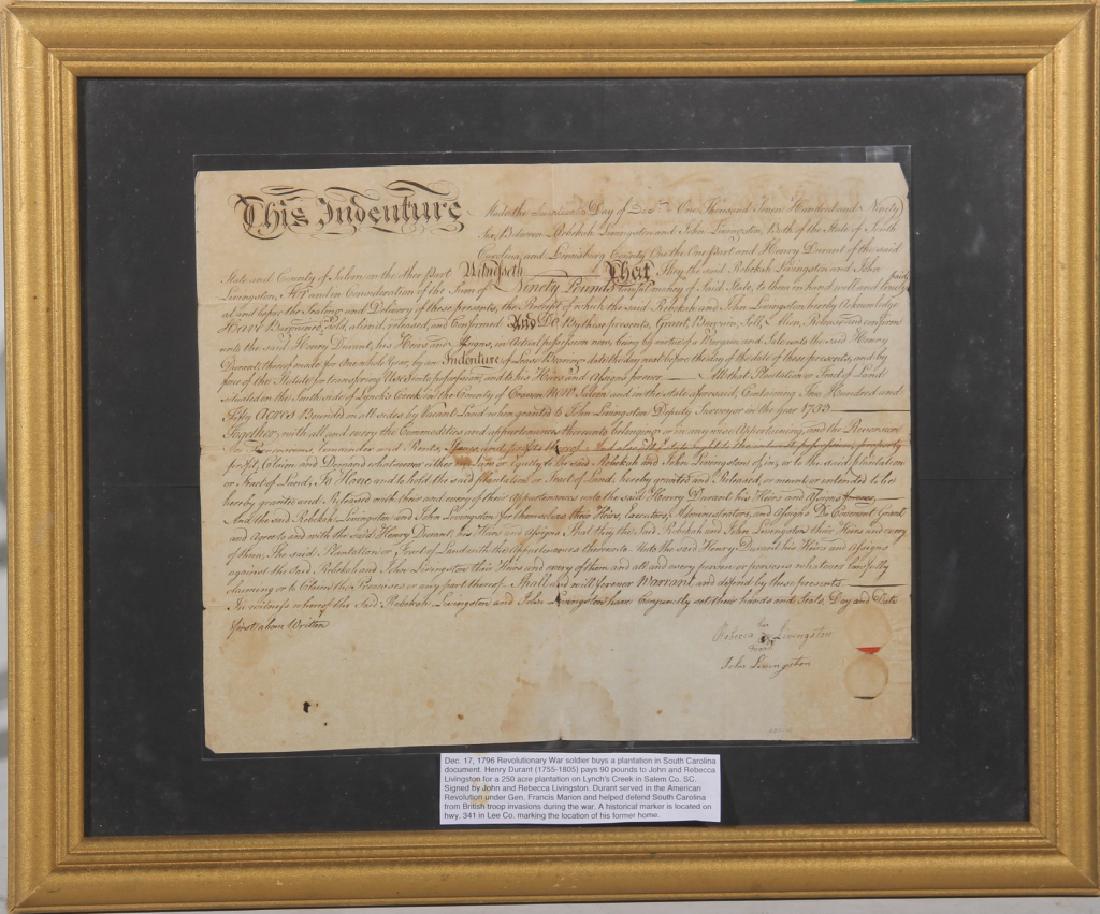 This Indenture Made the Day of One Thousand Seven Hundred and Ninety
Six, Between Rebekah Livingston and John Livingston, Both of the State of South
Carolina, and County On the One Part and Henry Durant of the said
State and County of Salem on the other Part Witnesseth That they the said Rebekah Livingston and John
Livingston, For and in Consideration of the Sum of Ninety Pounds money of Said State, to them in hand well and truly paid
at and before the Sealing and Delivery of these presents, the Receipt of which the said Rebekah and John Livingston hereby Acknowledge
Have Bargained, Sold, aliend, released, and Confirmed And Do By these presents, Grant, Bargain, Sell, Alien, Release and confirm
unto the said Henry Durant, his Heirs and Assigns, in Actual possession now being by virtue of a Bargain and Sale to the said Henry
Durant, thereof made for one whole Year, by an Indenture of Lease Bearing date the day next before the day of the date of these presents, and by
force of the Statute for transfering Uses into possession, and to his Heirs and Assigns forever All that Plantation or Tract of Land
situated on the South side of Lynch's Creek in the County of Craven Now Salem and in the state aforesaid, Containing Two Hundred and
Fifty Acres Bounded on all sides by Vacant Land when granted to John Livingston Deputy Surveyor in the Year 1755
Together with all and every the Commodities and appurtenances thereunto belonging or in any wise Appertaining, and the Reversion
Reversions, remainder and Rents, Issues and profits thereof and possession, property
profit, Claim and Demand whatsoever either in Law or Equity to the said Rebekah and John Livingston of, in, or to the said plantation
or Tract of Land; To Have and to hold the said Plantation or Tract of Land, hereby granted and Released, or meant or intended to be
hereby granted and Released with their and every of their Appurtenances unto the said Henry Durant his Heirs and Assigns forever,
And the said Rebekah Livingston and John Livingston for themselves their Heirs, Executors, Administrators, and Assigns Do Covenant Grant
and Agree to and with the said Henry Durant, his Heirs and Assigns That they the Said Rebekah and John Livingston their Heirs and every
of them, The said Plantation or Tract of Land with the Appurtenances thereunto Unto the said Henry Durant his Heirs and Assigns
against the said Rebekah and John Livingston their Heirs and every of them and all and every person or persons whatever lawfully
claiming or to Claim the Premises or any part thereof Shall and will forever Warrant and defend by these presents
In witness whereof the Said Rebekah Livingston and John Livingston have set their hands and Seals, Day and Date
first above Written
her
Rebecca Livingston
mark
John Livingston
Dec. 17, 1796 Revolutionary War soldier buys a plantation in South Carolina
document. Henry Durant (1755-1805) pays 90 pounds to John and Rebecca
Livingston for a 250 acre plantation on Lynch's Creek in Salem Co. SC.
Signed by John and Rebecca Livingston. Durant served in the American
Revolution under Gen. Francis Marion and helped defend South Carolina
from British troop invasions during the war. A historical marker is located on
hwy. 341 in Lee Co. marking the location of his former home.